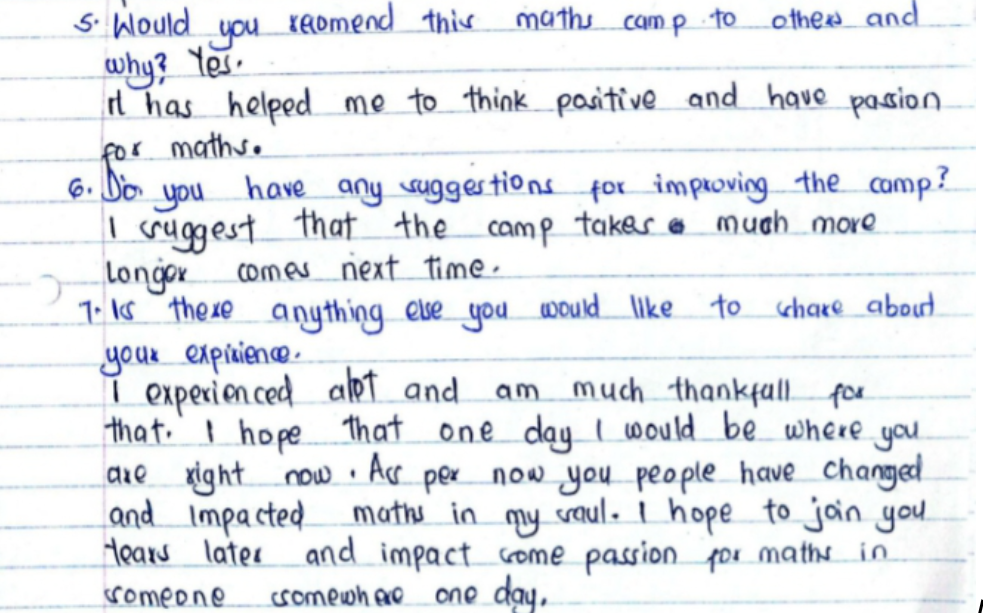 5. Would you recomend this maths camp to others and
why? Yes.
It has helped me to think positive and have passion
for maths.
6. Do you have any suggestions for improving the camp?
I suggest that the camp takes a much more
Longer comes next time.
7. Is there anything else you would like to share about
your expirience.
I experienced alot and am much thankfull for
that. I hope that one day I would be where you
are right now. As per now you people have changed
and impacted maths in my soul. I hope to join you
Years later and impact some passion for maths in
someone somewhere one day.